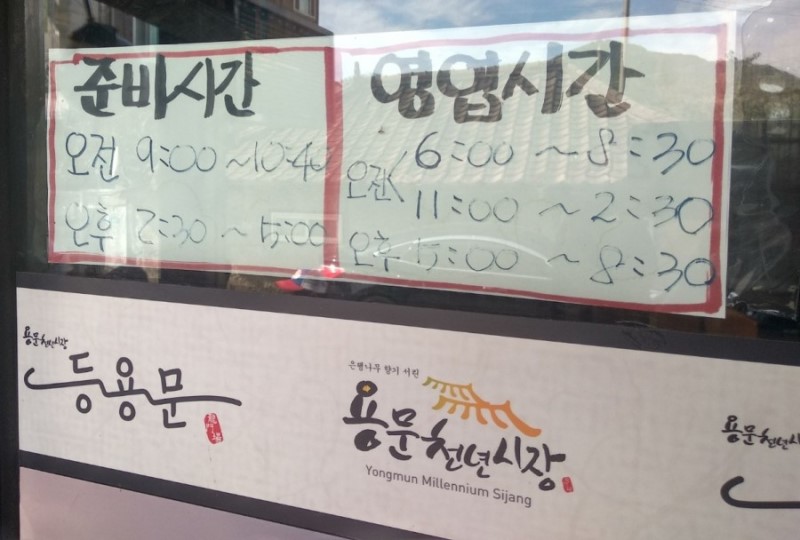 준비시간
오전 9:00 ~10:40
오후 2:30 ~ 5:00
영엽시간
오전 6:00 ~ 8:30
11:00 ~ 2:30
오후 5:00 ~ 8:30
용문천년시장
등용문
은행나무 향기 어린
용문천년시장
Yongmun Millennium Sijang
용문천년시